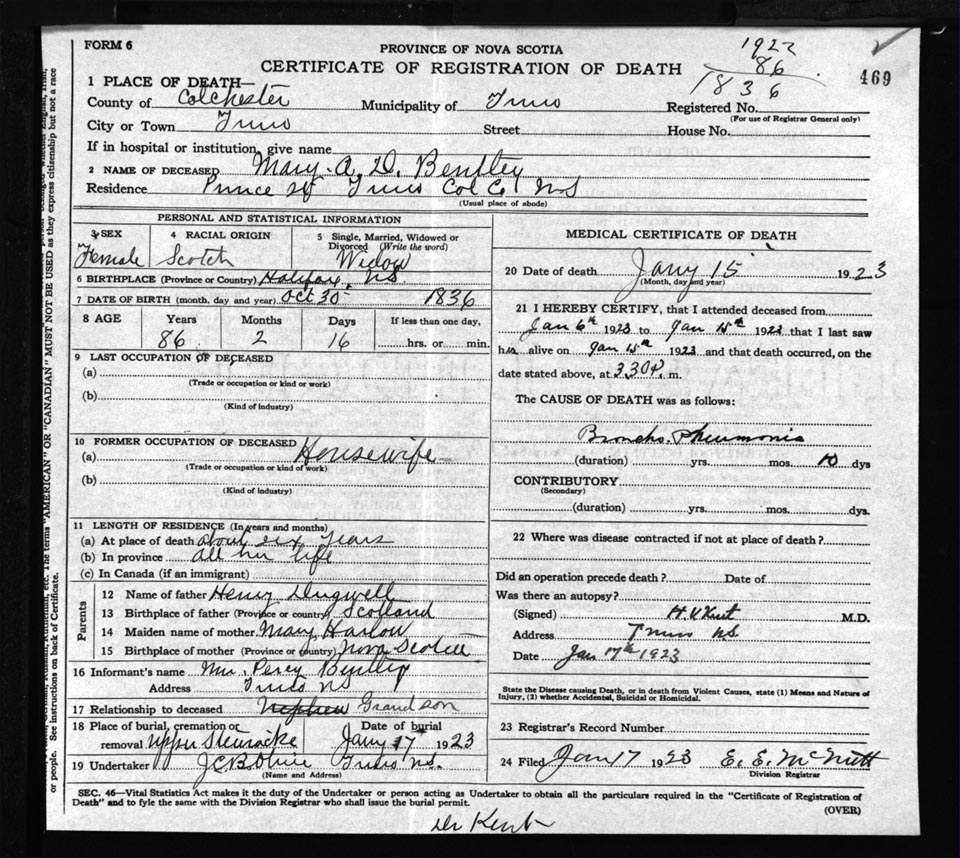 FORM 6
PROVINCE OF NOVA SCOTIA
CERTIFICATE OF REGISTRATION OF DEATH
1922
86
1836
469
1 PLACE OF DEATH—
County of Colchester Municipality of Truro Registered No.
(For use of Registrar General only)
City or Town Truro Street House No.
If in hospital or institution, give name
2 NAME OF DECEASED Mary. A. D. Bentley
Residence Prince St Truro Col Co NS
(Usual place of abode)
PERSONAL AND STATISTICAL INFORMATION
3 SEX Female
4 RACIAL ORIGIN Scotch
5 Single, Married, Widowed or Divorced (Write the word) Widow
6 BIRTHPLACE (Province or Country) Halifax, NS
7 DATE OF BIRTH (month, day and year) Oct 30 1836
8 AGE Years Months Days If less than one day,
86 2 16 hrs. or min.
9 LAST OCCUPATION OF DECEASED
(a)
(Trade or occupation or kind or work)
(b)
(Kind of industry)
10 FORMER OCCUPATION OF DECEASED
(a) Housewife
(Trade or occupation or kind of work)
(b)
(Kind of industry)
11 LENGTH OF RESIDENCE (In years and months)
(a) At place of death about six years
(b) In province all her life
(c) In Canada (if an immigrant)
Parents
12 Name of father Henry
13 Birthplace of father (Province or country) Scotland
14 Maiden name of mother Mary Harlow
15 Birthplace of mother (Province or country) Nova Scotia
16 Informant's name Percy Bentley
Address Truro NS
17 Relationship to deceased Nephew Grandson
18 Place of burial, cremation or removal Upper Stewiacke
Date of burial Jany 17 1923
19 Undertaker Truro NS.
(Name and Address)
MEDICAL CERTIFICATE OF DEATH
20 Date of death Jany 15 1923
(Month, day and year)
21 I HEREBY CERTIFY, that I attended deceased from
Jan 6th 1923 to Jan 15th 1923 that I last saw
alive on Jan 15th 1923 and that death occurred, on the
date stated above, at 3.30 P. m.
The CAUSE OF DEATH was as follows:
Broncho. Pneumonia
(duration) yrs. mos. 10 dys
CONTRIBUTORY
(Secondary)
(duration) yrs. mos. dys.
22 Where was disease contracted if not at place of death?
Did an operation precede death? Date of
Was there an autopsy?
(Signed) H V Kent M.D.
Address Truro NS
Date Jan 17th 1923
State the Disease causing Death, or in death from Violent Causes, state (1) Means and Nature of
Injury, (2) whether Accidental, Suicidal or Homicidal.
23 Registrar's Record Number
24 Filed Jan 17 1923 E. E. McNutt
Division Registrar
SEC. 46—Vital Statistics Act makes it the duty of the Undertaker or person acting as Undertaker to obtain all the particulars required in the "Certificate of Registration of
Death" and to fyle the same with the Division Registrar who shall issue the burial permit.
(OVER)
Dr Kent
etc. The terms "AMERICAN" OR "CANADIAN" MUST NOT BE USED as they express citizenship but not a race
or people. See instructions on back of Certificate.